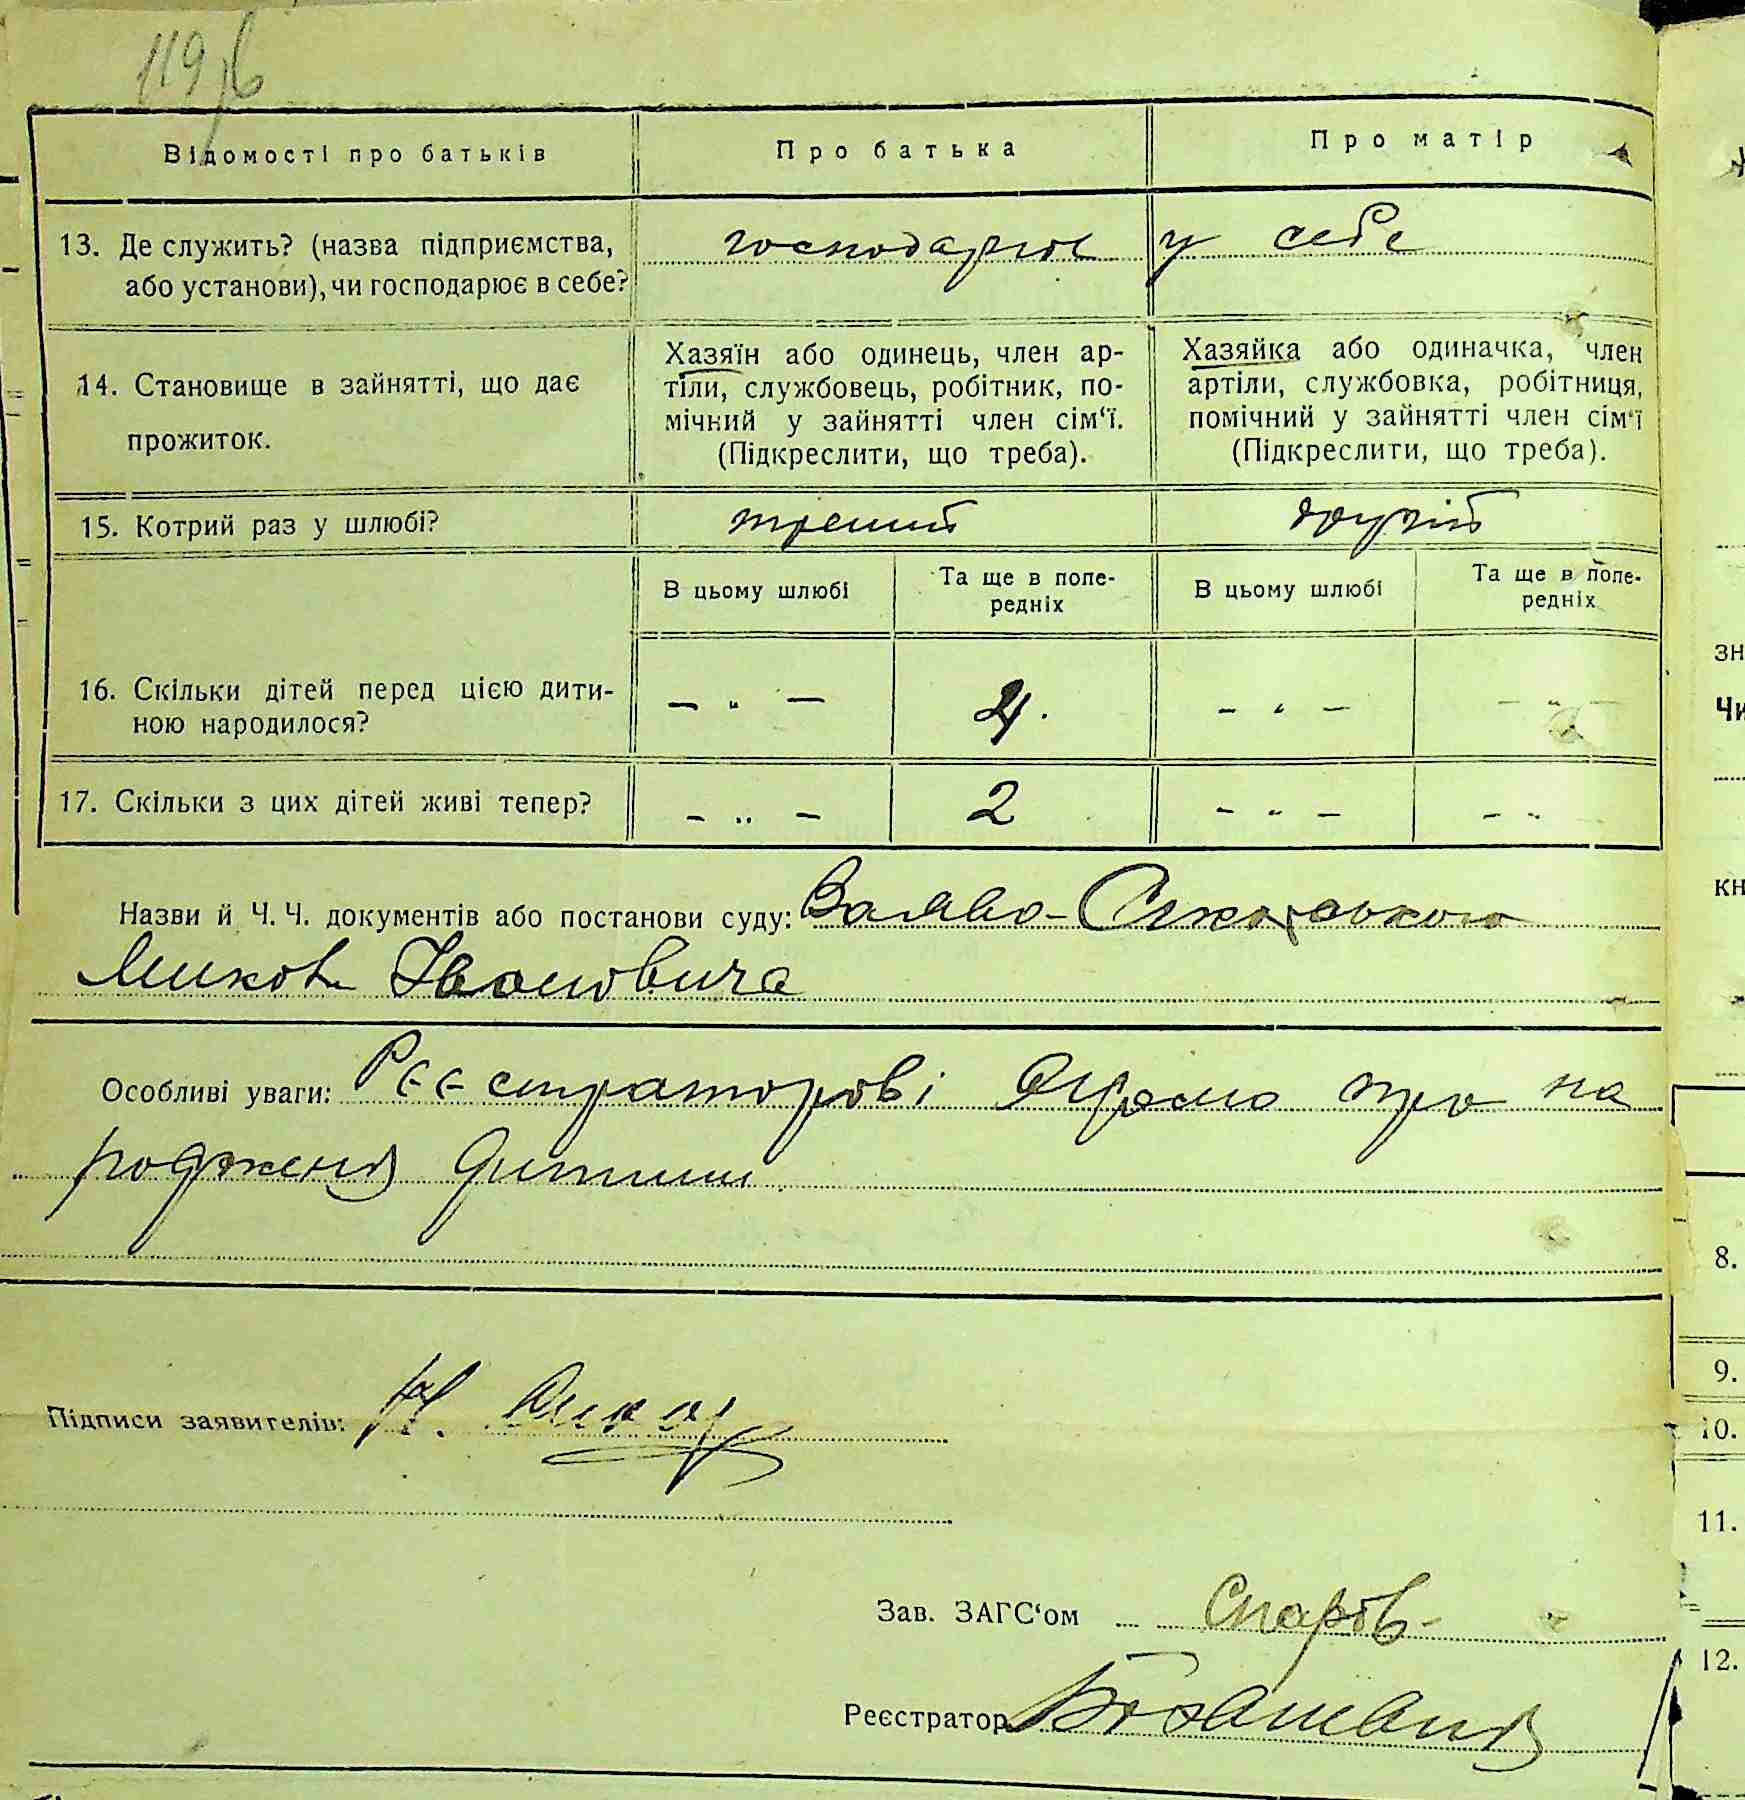 119
Відомості про батьків
Про батька
Про матір
13. Де служить? (назва підприємства,
або установи), чи господарює в себе?
господарює у себе
14. Становище в зайнятті, що дає
прожиток.
Хазяїн або одинець, член ар-
тіли, службовець, робітник, по-
мічний у зайнятті член сім‘ї.
(Підкреслити, що треба).
Хазяйка або одиначка, член
артіли, службовка, робітниця,
помічний у зайнятті член сім‘ї
(Підкреслити, що треба).
15. Котрий раз у шлюбі?
третий
другій
В цьому шлюбі
Та ще в попе-
редніх
В цьому шлюбі
Та ще в попе-
редніх
16. Скільки дітей перед цією дити-
ною народилося?
– „ –
4.
– „ –
– „ –
17. Скільки з цих дітей живі тепер?
– „ –
2
– „ –
– „
Назви й Ч. Ч. документів або постанови суду:
Івановича
Особливі уваги: Реєстраторові про на
родженя дитини
Підписи заявителів:
Зав. ЗАГС‘ом
Реєстратор
зн
Чи
кн
8.
9.
10.
11.
12.